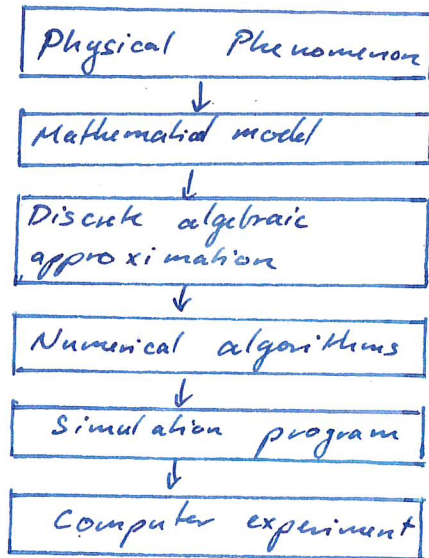 Physical Phenomenon
Mathematical model
Discrete algebraic
approximation
Numerical algorithms
Simulation program
Computer experiment